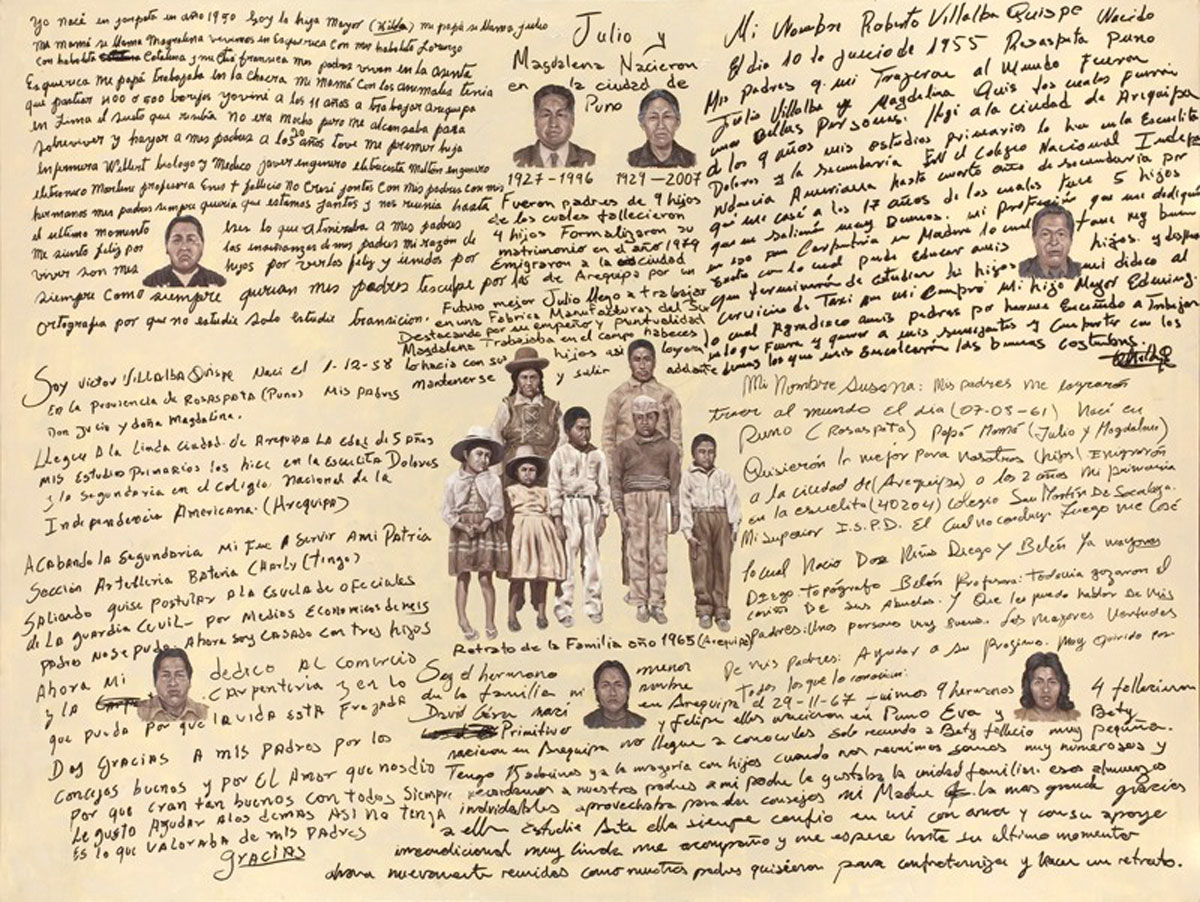 Yo nací en año 1950 Soy la hija Mayor (Hilda) mi papá se llama, julio
Mi Mamá se llama Magdalena viviamos en Esquerica con mis habolito Lorenzo
con habolita Catalina y mi tia francisca mis padres vivian en la
Esquerica me papá trabajaba en la chacra mi Mamá con los anemales tenia
que partiar 400 o 500 borejos yo vine a los 11 años a trabajar arequipa
en Lima el sueldo que resibia No era mucho pero me alcansaba para
sobrevivir y hayar a mes padres a los 20 años tove me premer hijo
enfermera Wilbert biologo y Medico javer engenero Milton engenero
Marlene profesora Eros + fallecio No Cresí jontos con Mis padres con mis
hermanos mes padres sempre queria que estamos jontos y nos reunia hasta
el ultimo momento
Eses lo que Almiraba a MES padres
Me siento feliz por las ensiñanzas de mes padres mi razón de
vever son mes hijos por verlos feliz y unidos por
siempre como siempre querian mes padres desculpe por las
ortografia por que no estudie solo estudie transicion.
Julio y
Magdalena Nacieron
en la ciudad de
Puno
1927-1996 1929-2007
Fueron padres de 9 hijos
de los cuales fallecieron
4 hijos Formalizaron su
matrimonio en el año 1979
Emigraron a la ciudad
de Arequipa por un
Futuro mejor Julio llego a trabajar
en una Fabrica Manufacturas del Sur
Destacando por su empeño y Puntualidad
Magdalena Trabajaba en el campo habeces
lo hacia con sus hijos asi logrova
mantenerse y salir adelante
Mi Nombre Roberto Villalba Quispe Nacido
El dia 10 de Junio de 1955 Rosaspata Puno
Mis padres q mi Trajeron al Mundo Fueron
Julio Villalba y Magdalena Quis los cuales fueron
unas Bellas Personas. Llegi a la ciudad de Arequipa
a los 9 años mis estudios primarios lo hice en la Escuelita
Dolores y la secundaria En el Colegio Nacional Indepen
dencia Americana hasta cuarto año de secundaria por
que me casé a los 17 años de los cuales tuve 5 hijos
que me salieron muy Buenos. mi profeción que me dediqué
en eso fue Carpinteria en Madera lo cual fove muy buen
sosto con lo cual pude educar amis hijos. y despues
que terminaron de estudiar mi hijos mi dedico al
Cervicino de Taxi que mi Compró mi hijo Mayor Edwing.
lo cual Agradesco a mis padres por haverme Enseñado a Trabajar
en lo que fuera y querer a mis semejantes y Compartir con los
demas los que mis Enculcarón las buenas costumbres.
Soy Victor VILLALBA Quispe Naci el 1-12-58
En la Provincia de ROSASPATA (Puno) Mis PADRES
Don Julio y doña Magdalina.
Llegue A la Linda ciudad de Arequipa LA edad de 5 años
Mis Estudios Primarios los hice en la Escuelita Dolores
y la segundaria en el Colegio Nacional de la
Independencia Americana. (Arequipa)
Acabando la Segundaria Mi Fue A Servir A mi Patria
Sección Artelleria Bateria Charly (Tingo)
Saliendo quise Postular A la Escuela de ofeciales
de LA Guardia Civil- por Medios Economicos de mis
padres No se pudo. Ahora Soy CASADO con tres hijos
Ahora Mi dedico AL Comercio
y LA Carpenteria y en lo
que pueda por que la vida esta Fregada
Doy Gracias A mis PADRES por los
Concejos buenos y por El Amor que nos dio
Por que eran tan buenos con todos Siempre
Le gusto Ayudar A los demas Asi No tenga
Es lo que VALORABA de mis PADRES
GRACIAS
Retrato de la Familia año 1965 (Arequipa)
Mi Nombre Susana: Mis padres me lograron
traer al mundo el dia (07-03-61) Nací en
Puno (Rosaspata) Papá Mamá (Julio y Magdalena)
Quisierón lo mejor para nosotros (hijos) Emigrarón
a la ciudad de (Arequipa) a los 2 años Mi primaria
en la escuelita (40204) Colegio San Martín De Socabaya.
Mi Superior I.S.P.D. El Cual no conclugi Luego me Casé
lo cual Nacio Dos Niños Diego y Belén Ya mayores
Diego topógrafo Belén Profesora: todavia gozaron el
cariño De sus Abuelos. Y Que les puedo hablar De Mis
Padres: Unas personas muy buena. Los Mayores Vertudes
De mis padres: Ayudar a su Proximo. Muy querido por
Todos los que lo conocian.
Soy el hermano menor
de la familia mi nombre
David César naci en Arequipa el 29-11-67 -uimos 9 hermanos 4 fallecieron
Primitivo y Felipe ellos nacieron en Puno Eva y Bety
nacieron en Arequipa no llegue a conocerlos solo recuerdo a Bety fallecio muy pequeña.
Tengo 15 sobrinos ya la mayoria con hijos cuando nos reunimos somos muy numerosos y
recordamos a nuestros padres a mi padre le gustaba la unidad familiar. esos almuerzos
inolvidables aprovechaba para dar consejos mi Madre la mas grande gracias
a ella Estudie Arte ella siempre confio en mi con amor y con su apoyo
incondicional muy linda me acompaño y me espere hasta su ultimo momento
ahora nuevamente reunidos como nuestros padres quisieron para confraternizar y hacer un retrato.